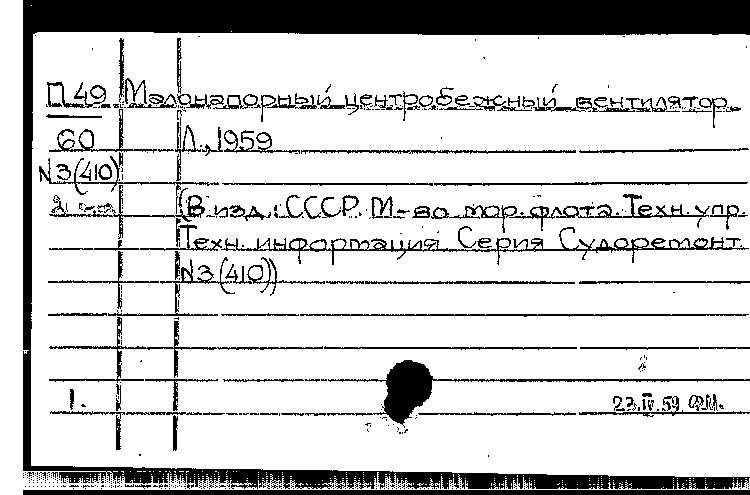 П 49 Малонапорный центробежный вентилятор.
60 Л., 1959
N3(410)
2 (В изд.: СССР. М-во мор. флота. Техн. упр.
Техн. информация Серия Судоремонт
N3(410))
1. 23.IV.59